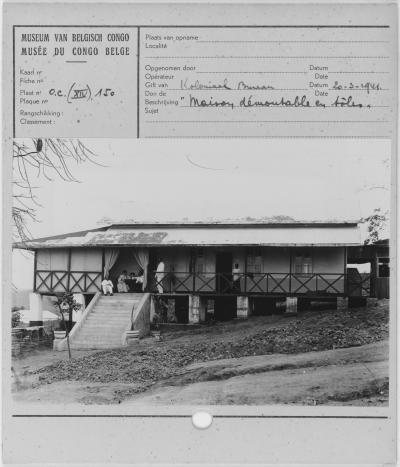 MUSEUM VAN BELGISCH CONGO
MUSÉE DU CONGO BELGE
Kaart nr
Fiche nº
Plaat nr O.C. (XIV) 150
Plaque nº
Rangschikking :
Classement :
Plaats van opname
Localité
Opgenomen door Datum
Opérateur Date
Gift van Koloniaal Bureau Datum 20-3-1941.
Don de Date
Beschrijving "Maison démontable en tôles.
Sujet